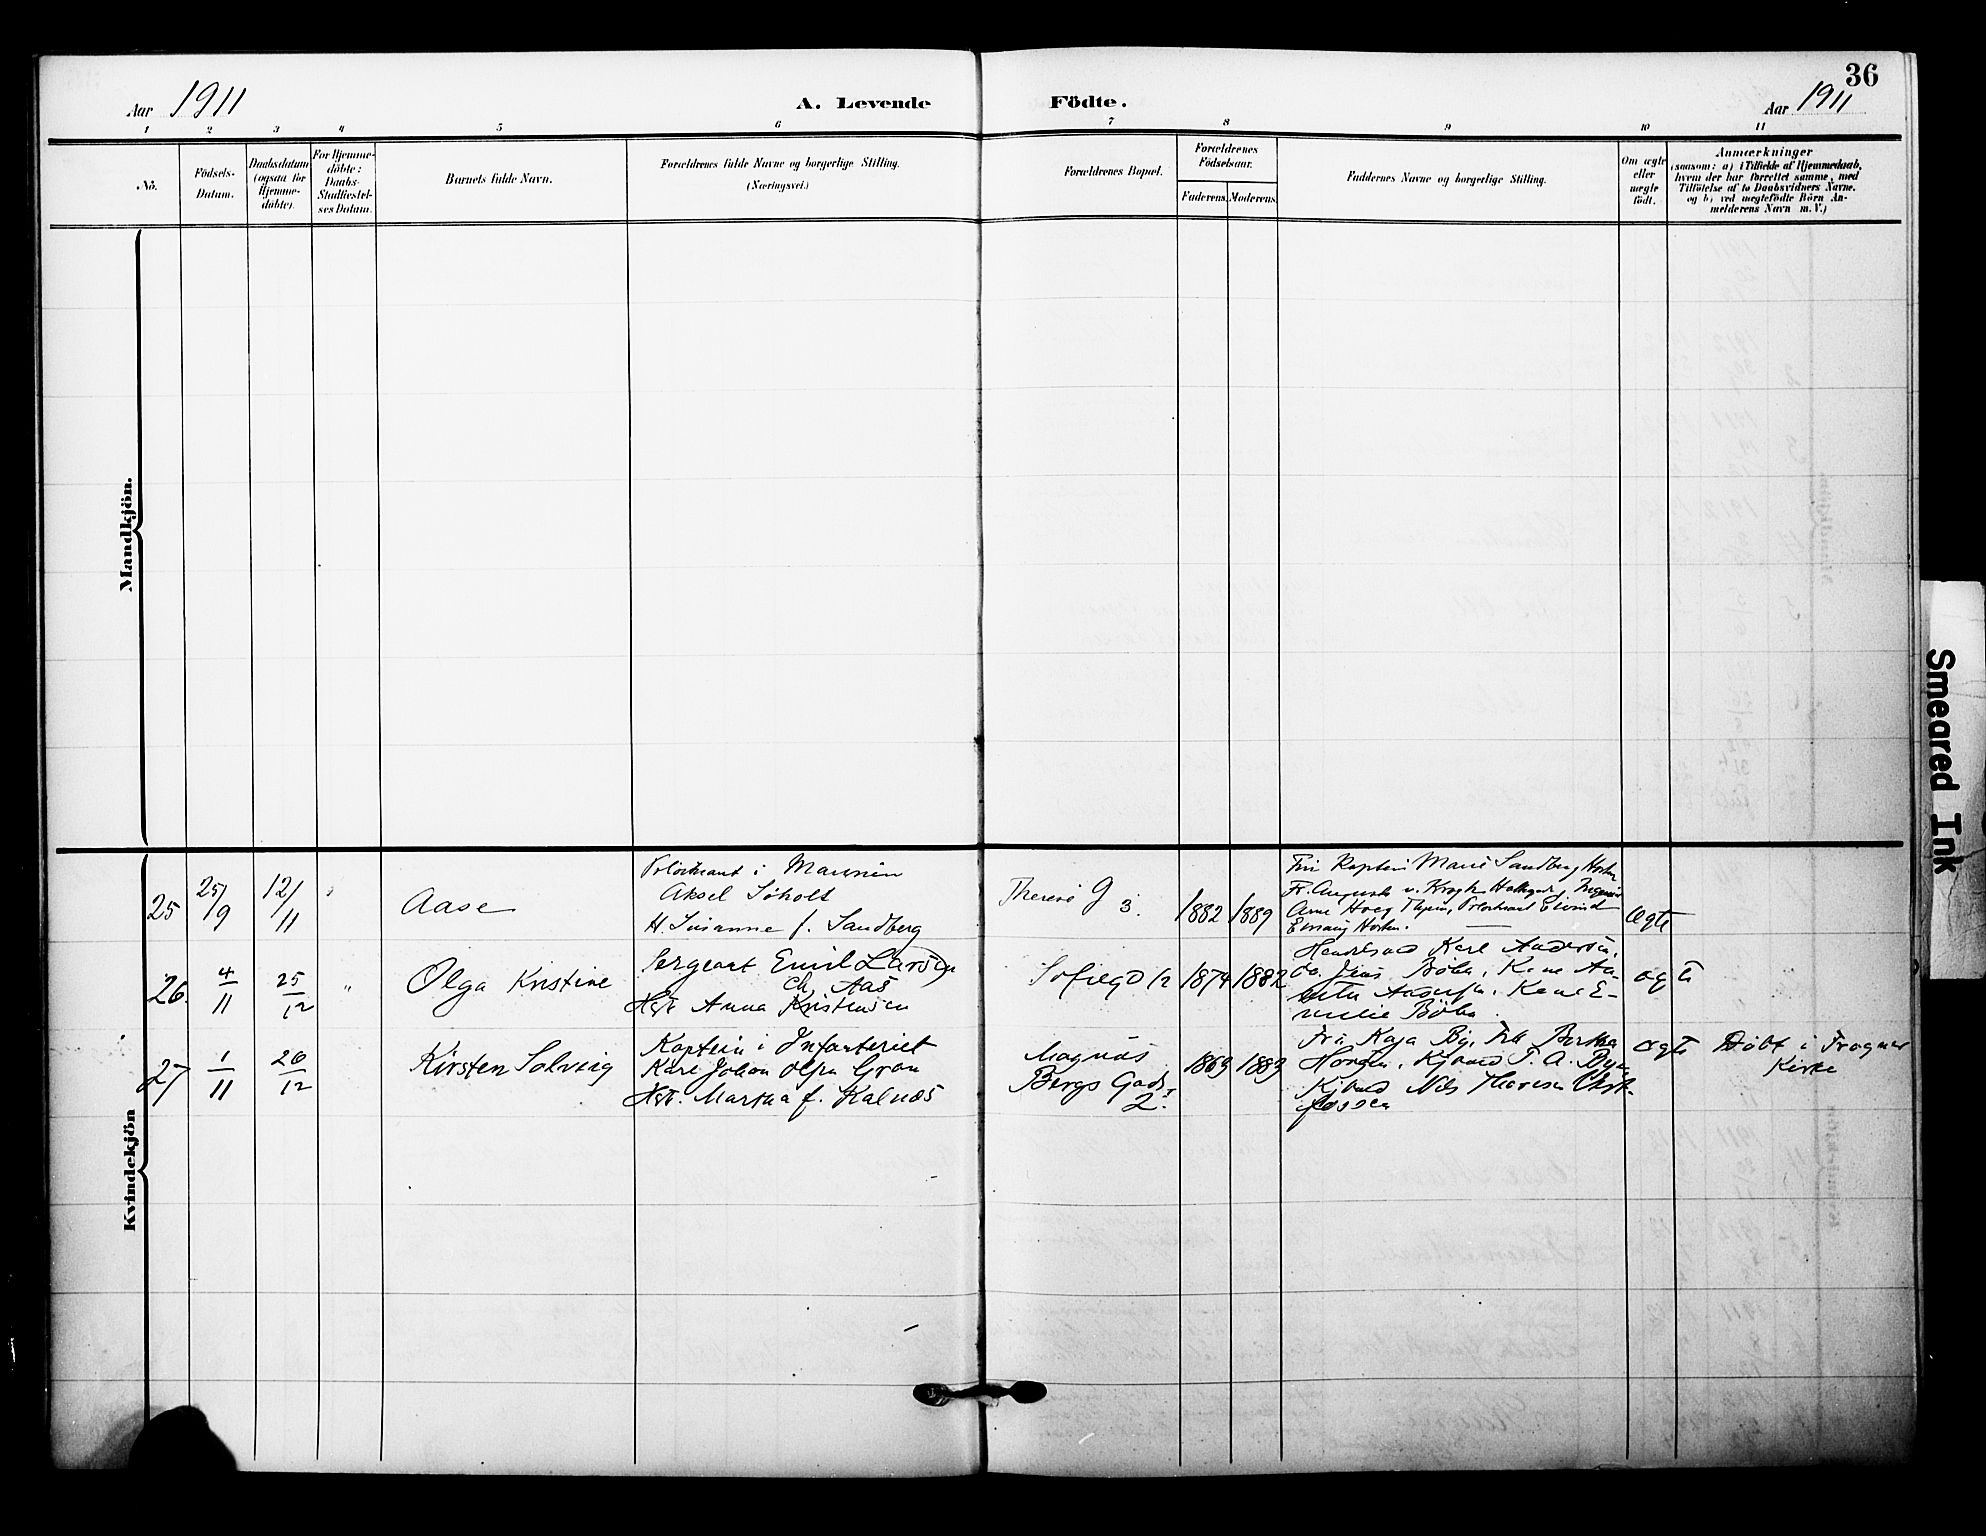 36
Aar 1911
A. Levende Födte.
Aar 1911
1 2 3 4 5 6 7 8 9 10 11
No.
Födsels-
Datum.
Daabsdatum
(ogsaa for
Hjemme-
döbte).
For Hjemme-
döbte:
Daabs-
Stadfæstel-
ses Datum.
Barnets fulde Navn.
Forældrenes fulde Navne og borgerlige Stilling.
(Næringsvei.)
Forældrenes Bopæl.
Forældrenes
Födselsaar.
Faderens. Moderens.
Faddernes Navne og borgerlige Stilling.
Om ægte
eller
uægte
födt.
Anmærkninger
(saasom: a) i Tilfælde af Hjemmedaab,
hvem der har forrettet samme, med
Tilföielse af to Daabsvidners Navne.
og b) ved uægtefödte Börn An-
melderens Navn m. V.)
Mandkjön.
Kvindekjön
25
25/9
12/11
"
Aase
i Marinen
Aksel Söholt
H. Susanne f. Sandberg
Therese G 3.
1882
1889
Kaptein Marie Sandberg Horten
Fr. Augusta v. Krogh
Horten.
ægte
26.
4/11
25/12
"
Olga Kristine
Sergeant Emil Larsen
Aas
Hst Anna Kristensen
Sofiegd 12
1874
1882
Karl Andersen,
do. Jens
ægte
27
1/11
26/12
Kirsten Solveig
Kaptein i Infanteriet
Karl Johan Olsen Gron
Hst. Martha f. Kalnæs
Magnus
Bergs Gade
2.
1869
1883
Fru Kaja By, Frk Bertha
Kjbmd T. A. By,
Kjbmd Nils
ægte
Döbt i Frogner
Kirke
Smeared Ink